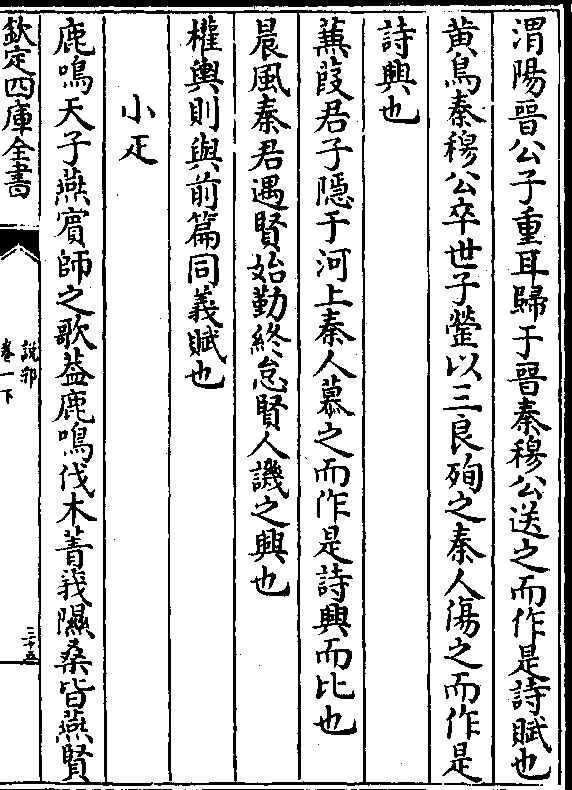 渭陽晉公子重耳歸于晉秦穆公送之而作是詩賦也
黄鳥秦穆公卒世子罃以三良殉之秦人傷之而作是
詩興也
蒹葭君子隱于河上秦人慕之而作是詩興而比也
晨風秦君遇賢始勤終怠賢人譏之興也
權輿則與前篇同義賦也
小疋
鹿鳴天子燕賓師之歌葢鹿鳴伐木菁莪隰桑皆燕賢
欽定四庫全書
說郛
卷一下
三十五